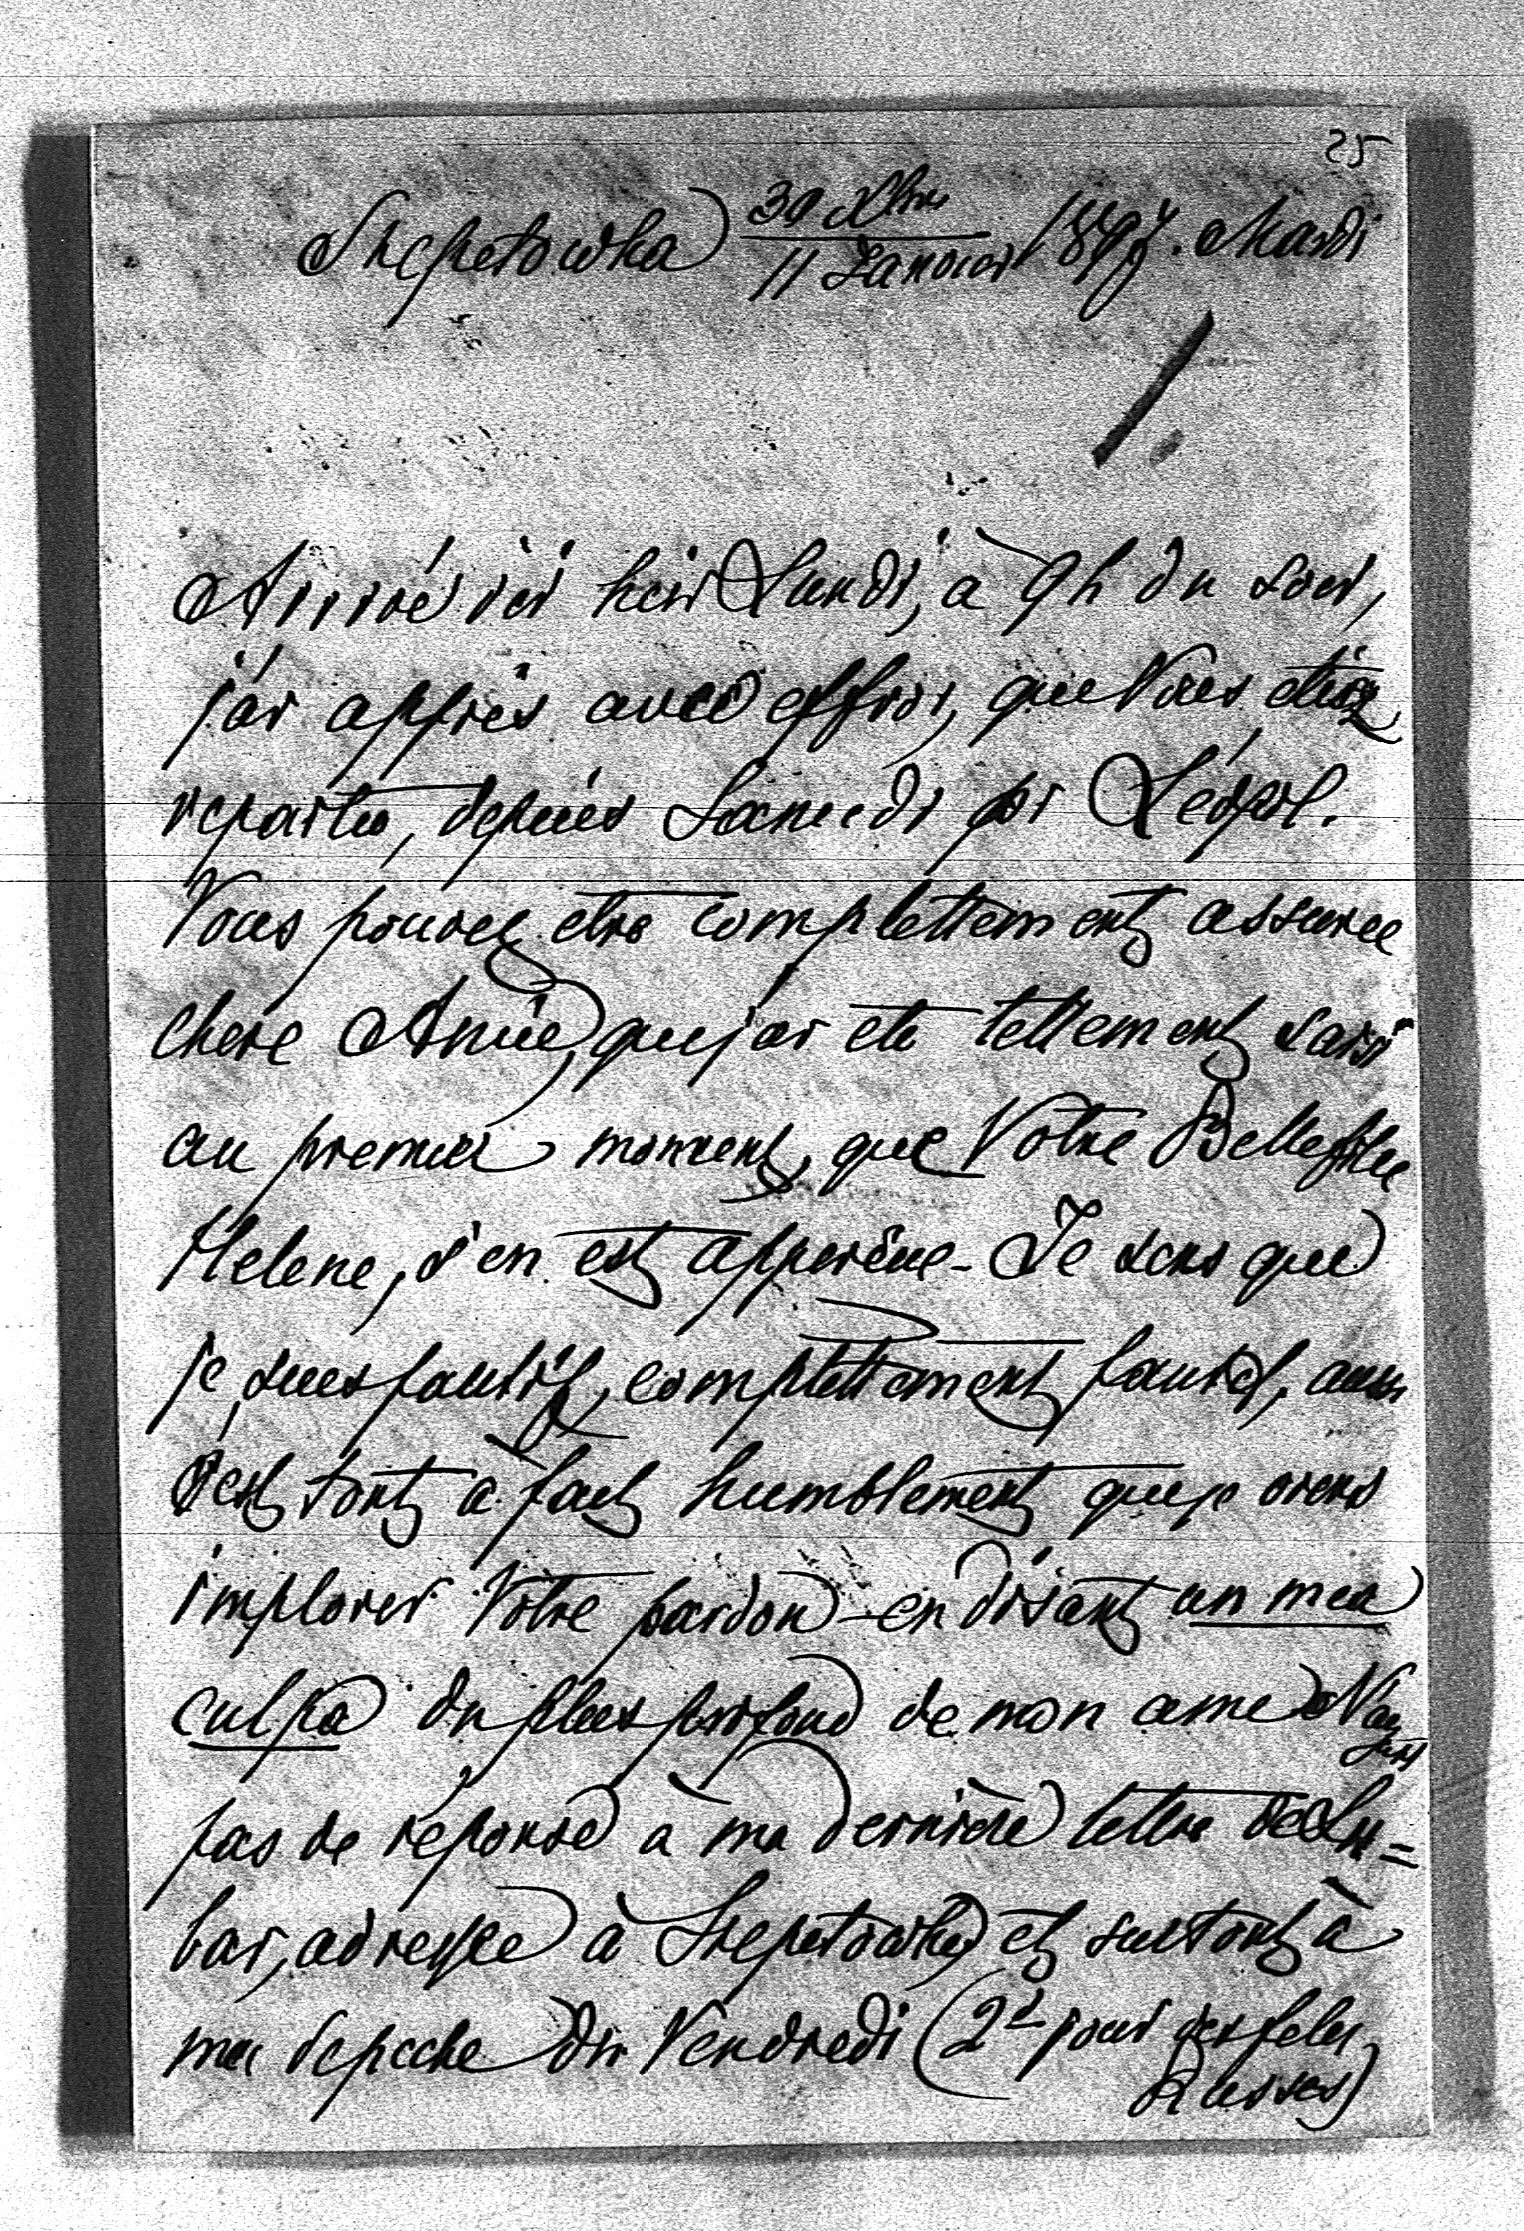 25
Szepetowka 30 Xbre
11 Janvier 1897/8. Mardi
1.
Arrivé ici hier Lundi, à 9h du soir,
j'ai appris avec effroi, que Vous etiez
repartie, depuis Samedi pr Léopol.
Vous pouvez etre complettement assuree
chere Amie, que j'ai ete tellement saisi
au premier moment, que Votre Bellefille
Helene, s'en est apperçue - Je sens que
je suis fautif, complettement fautif, aussi
c'est tout à fait humblement que je viens
implorer Votre pardon en disant un mea
culpa du plus profond de mon ame N'ayant
pas de réponse à ma dernière lettre de Lu=
bar, adressee à Szepetowka et surtout à
ma depeche du Vendredi (2d jour des fetes
Russes)